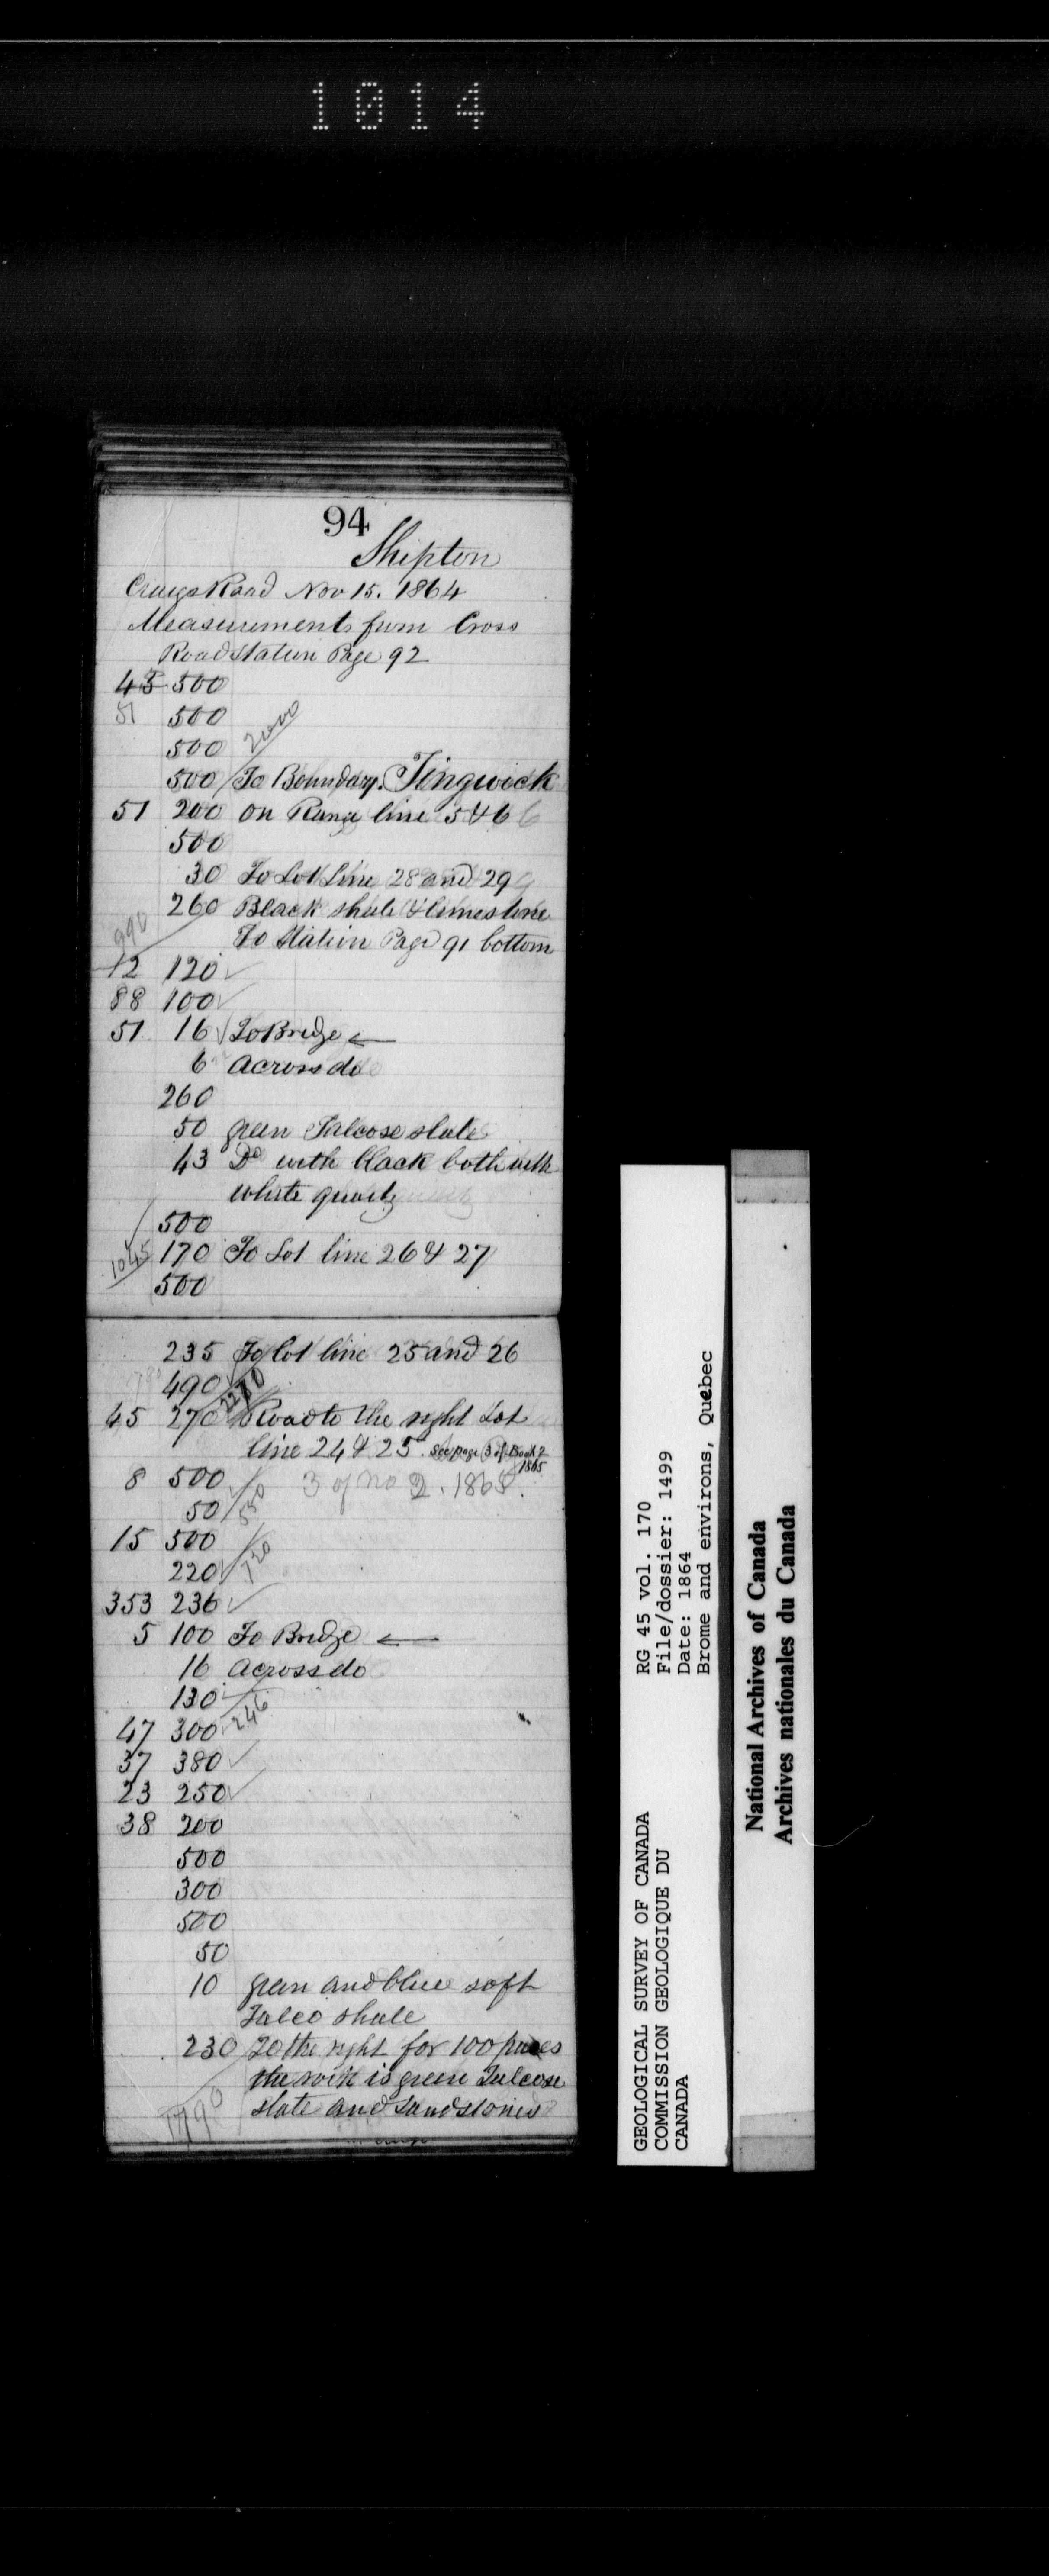 1014
94
Shipton
Craigs Road Nov 15. 1864
Measurements from Cross
Road Station Page 92
45 500
51 500
500 2000
500 To Boundary. Tingwick
51 200 on Range line 5 & 6
500
30 To Lot Line 28 and 29
260 Black shale & limestone
990 To Station Page 91 bottom
12 120
88 100
51 16 To Bridge ←
6 Across do
260
50 green Talcose slate
43 Do with black both with
white quartz
500
1045 170 To Lot line 26 & 27
500
235 To lot line 25 and 26
490
45 270 Road to the right Lot
line 24 & 25. See page 3 of Book 2
1865
8 500 3 of no 2. 1865.
50 550
15 500
220 720
353 236
5 100 To Bridge ←
16 Across do
130 246
47 300
37 380
23 250
38 200
500
300
500
50
10 green and blue soft
Talco shale
230 To the right for 100 paces
the rock is green Talcose
1790 slate and sandstones
GEOLOGICAL SURVEY OF CANADA
COMMISSION GEOLOGIQUE DU
CANADA
RG 45 vol. 170
File/dossier: 1499
Date: 1864
Brome and environs, Quebec
National Archives of Canada
Archives nationales du Canada